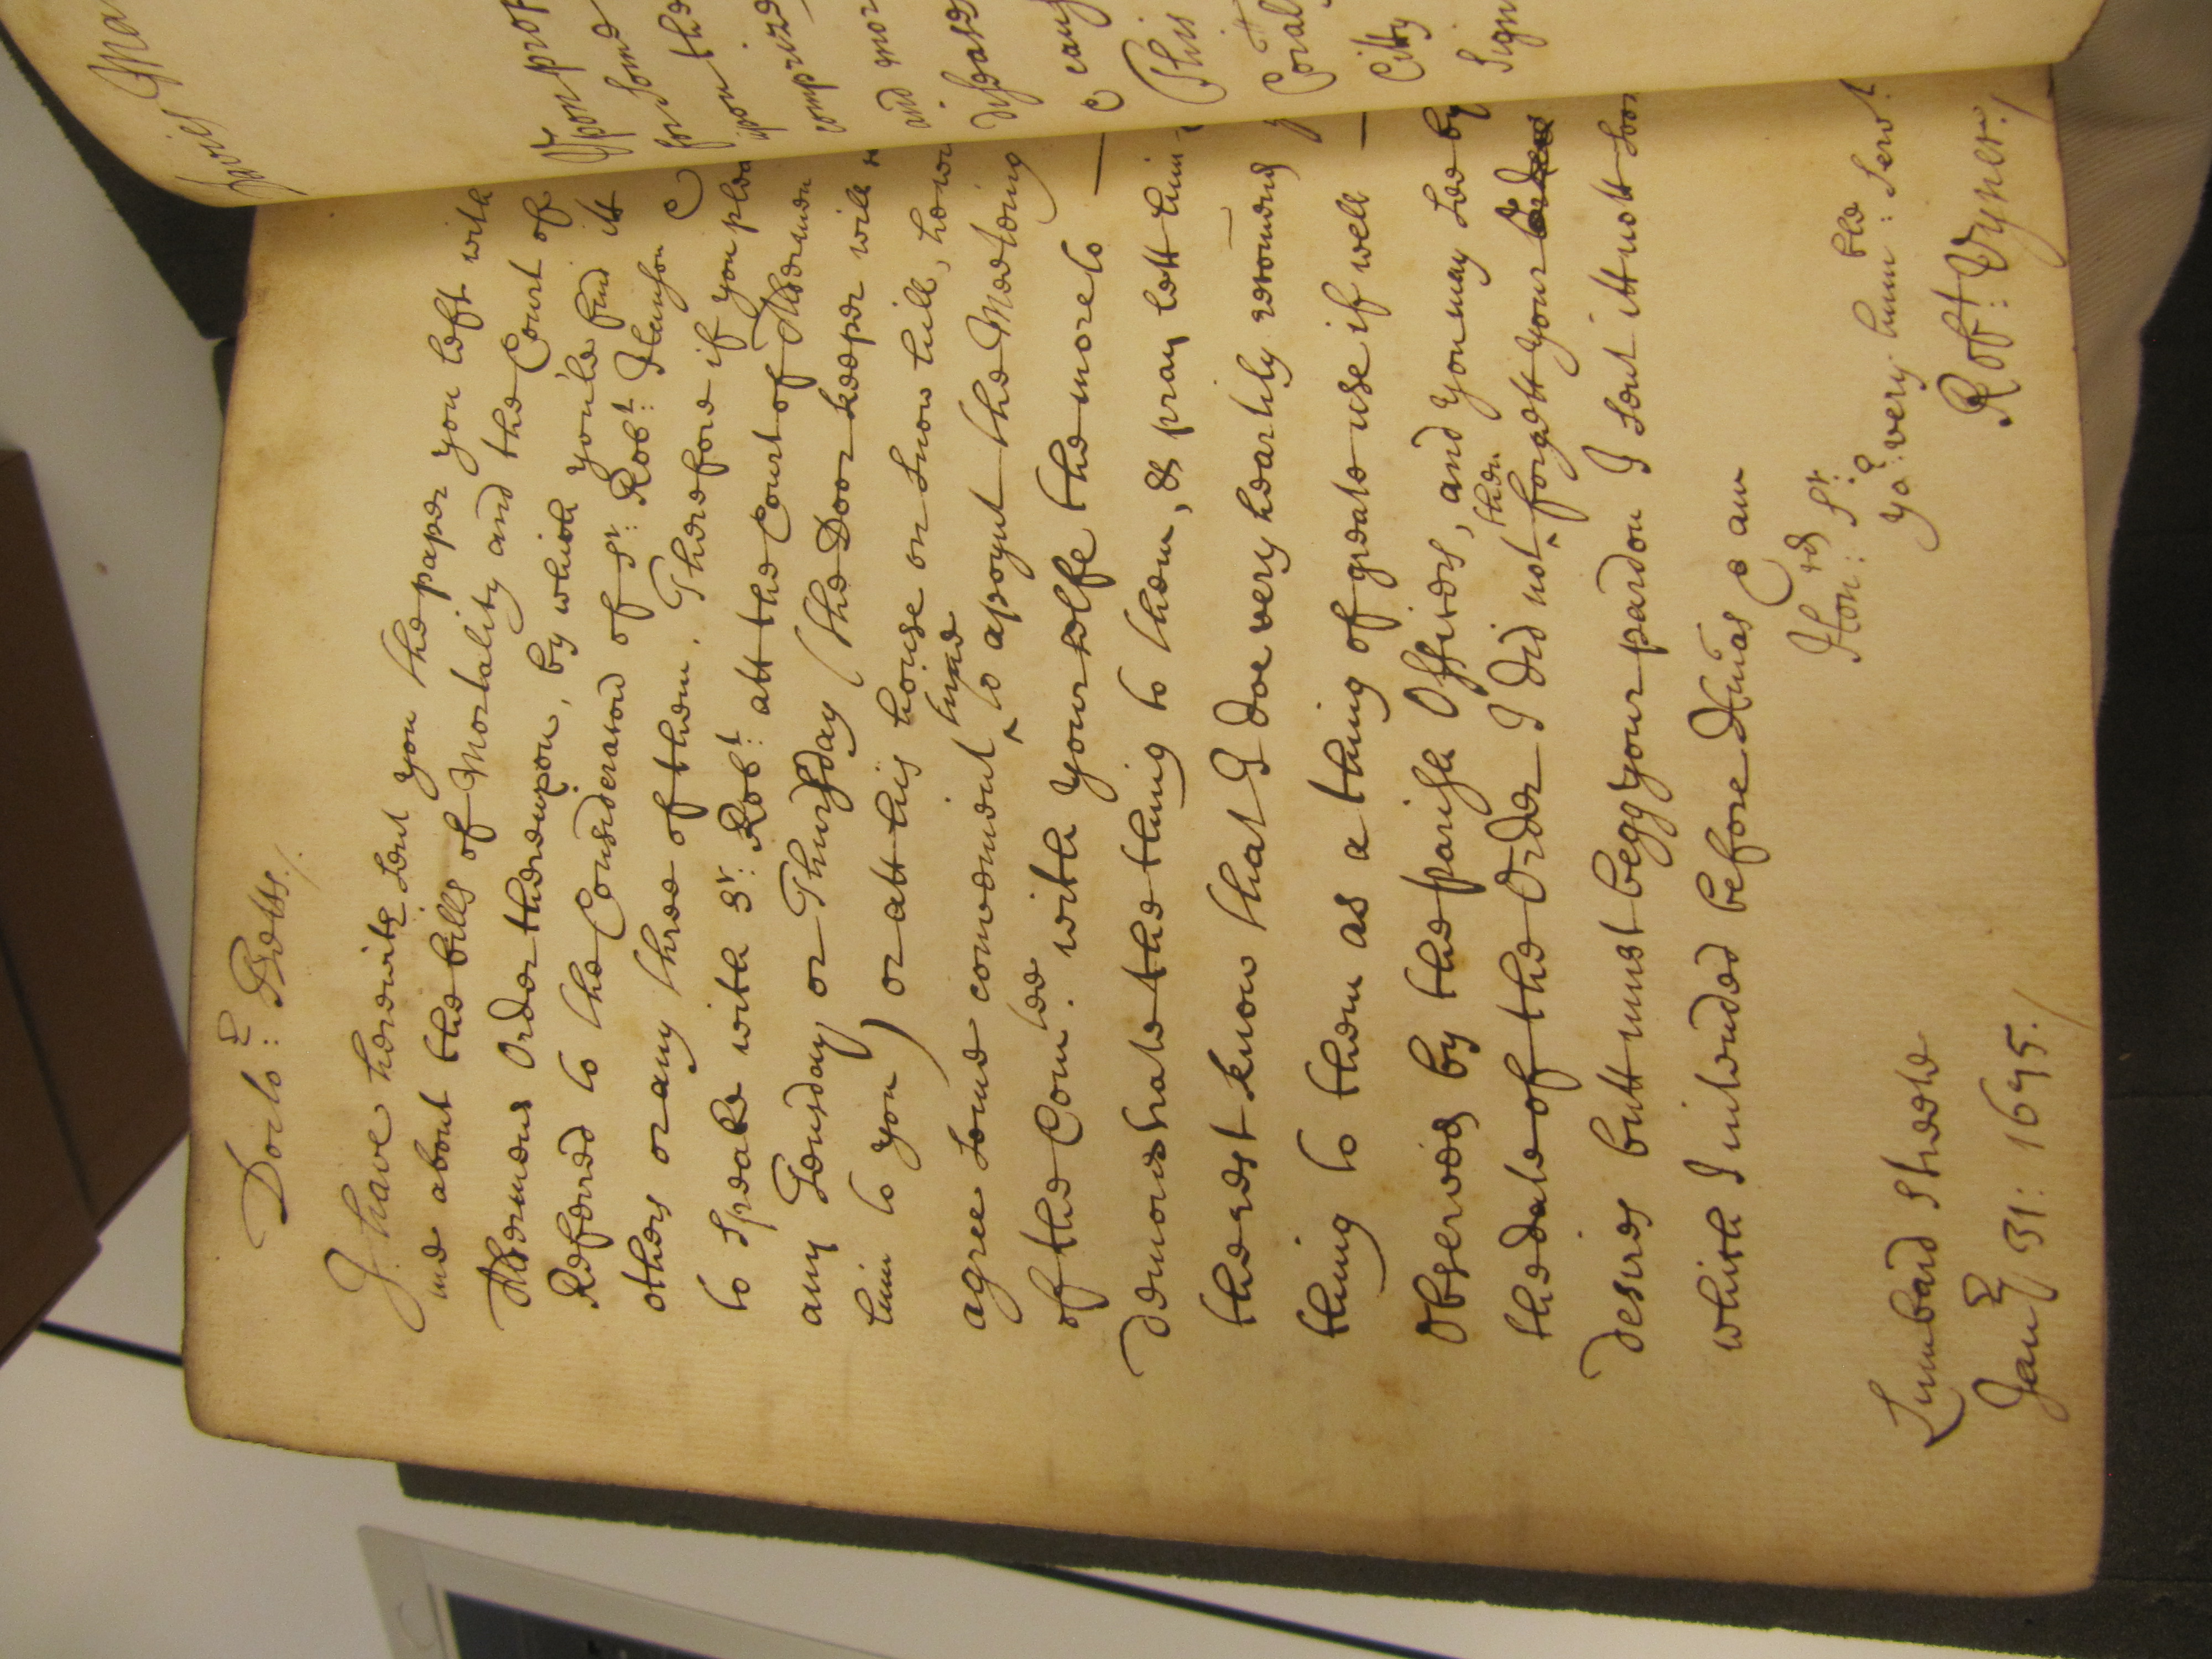 Docto:r Betts./
I have herewith sent you the paper you left with
me about the bills of Mortality and the Court of
Aldermens Order thereupon, by which you'le find itt
Referred to the Consideracon of Sr: Robt: Hanson
others or any three of them. Therefore if you plea
to speake with Sr: Robt: att the Court of Aldermen
any Teusday or Thursday (the Door keeper will
him to you) or att his house on Snow hill, how
agree some convenient ^ time to apoynt the Meeting
of the Com:tee with your selfe the more to —
demonstrate the thing to them, & pray lett him
the rest know that I doe very heartily recomend
thing to them as a thing of greate use if well —
Observed by the parish Officers, and you may see by
the date of the Order I did not ^ then forgett your
desires butt must begg your pardon I sent itt not soon
which I intended before Huias I am
Hon:rd Sr:
Yor: very hum:ble Servt.
Robt: Vyner./
Lumbard Streete
Janry 31: 1675./
Upon
for some
upon the
comprized
and mor
diseases
This
City
Sign